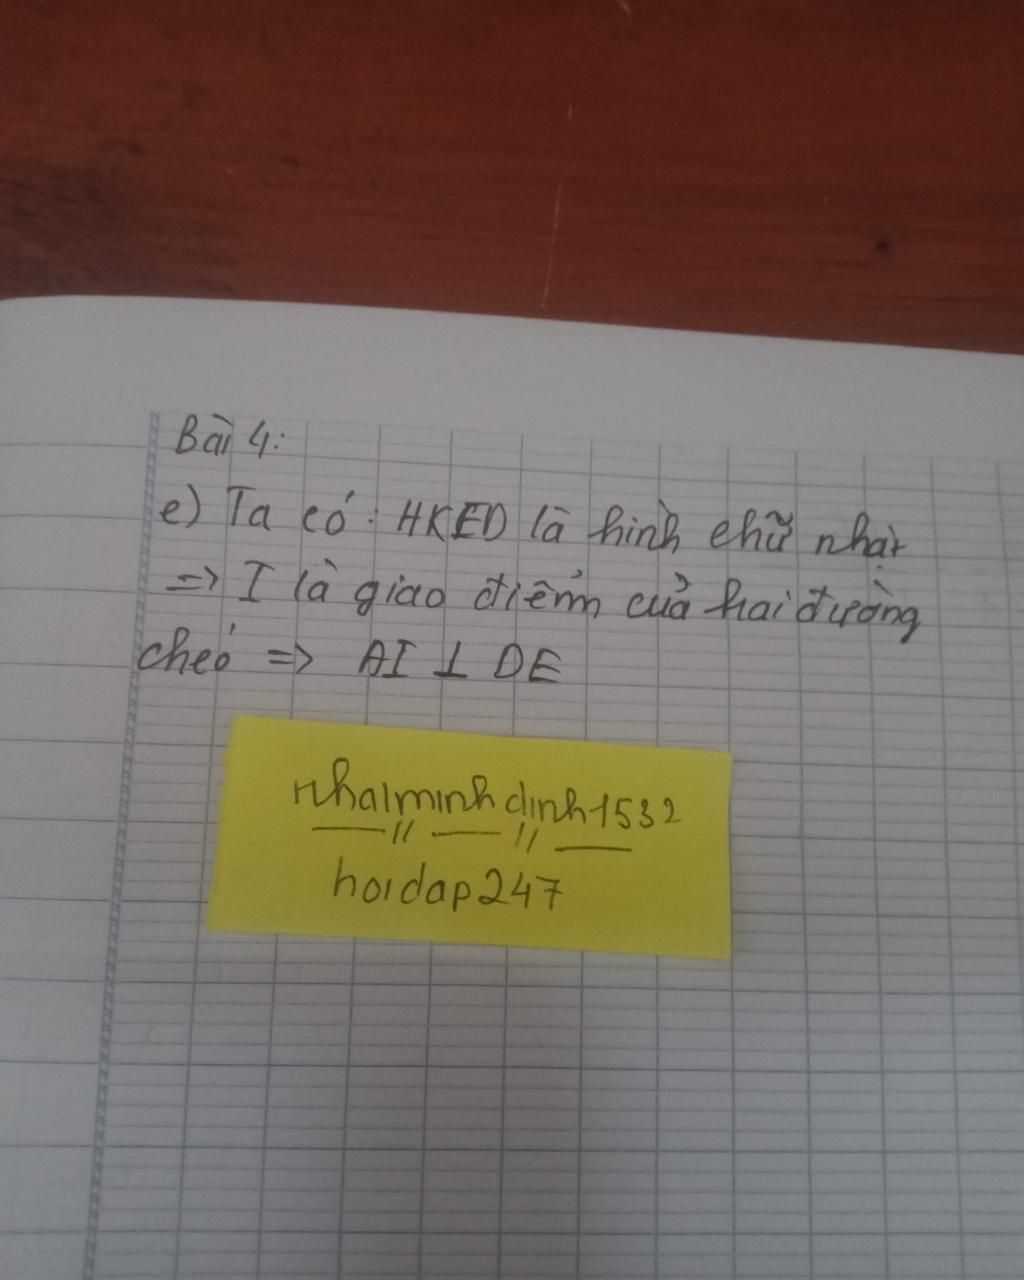 Bài 4:
c) Ta có: HKED là hình chữ nhật
=> I là giao điểm của hai đường
chéo => AI ⊥ DE
nhaiminhdinh1532
hoidap247